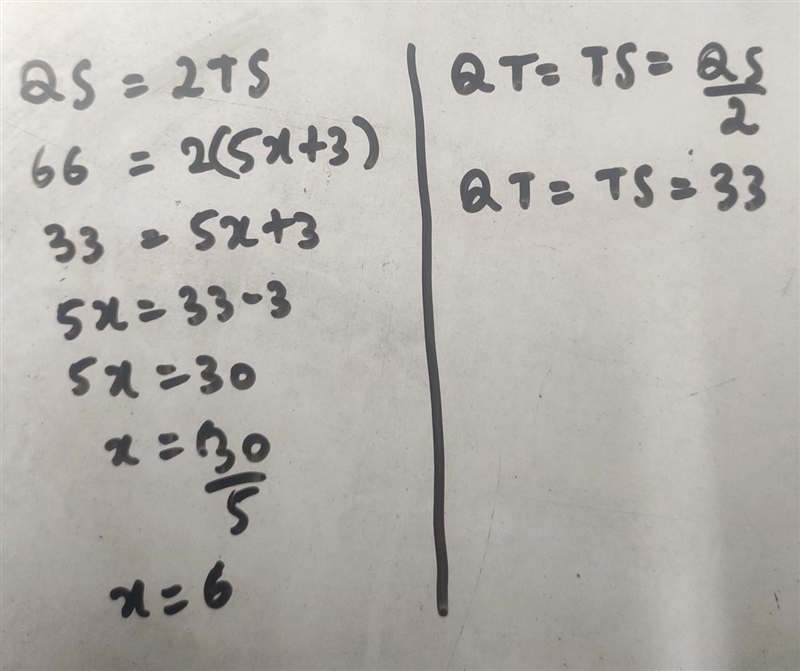 QS = 2TS
66 = 2(5x+3)
33 = 5x+3
5x = 33-3
5x = 30
x = 30/5
x = 6
QT = TS = QS/2
QT = TS = 33